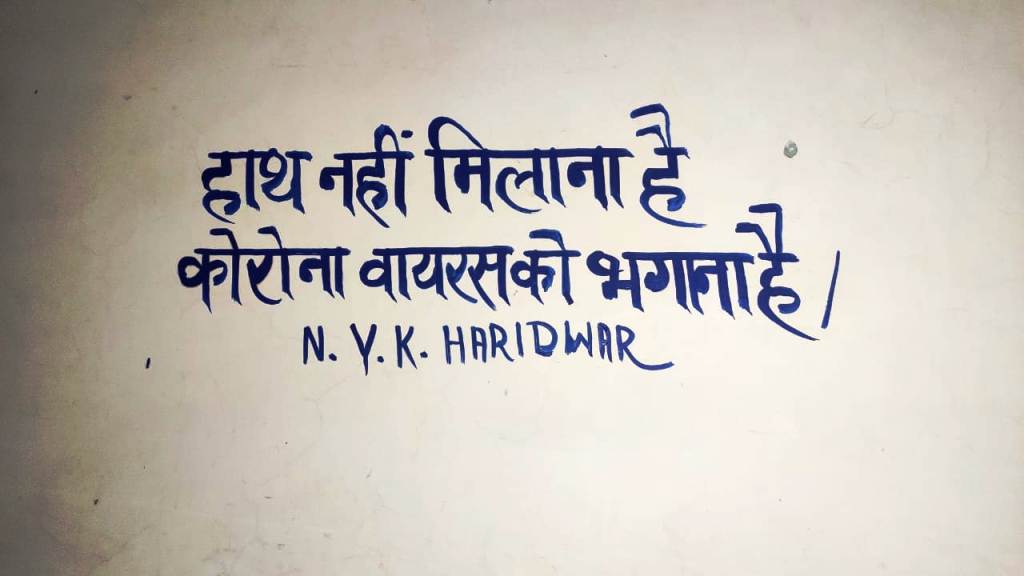 हाथ नहीं मिलाना है
कोरोना वायरस को भगाना है।
N. Y. K. HARIDWAR